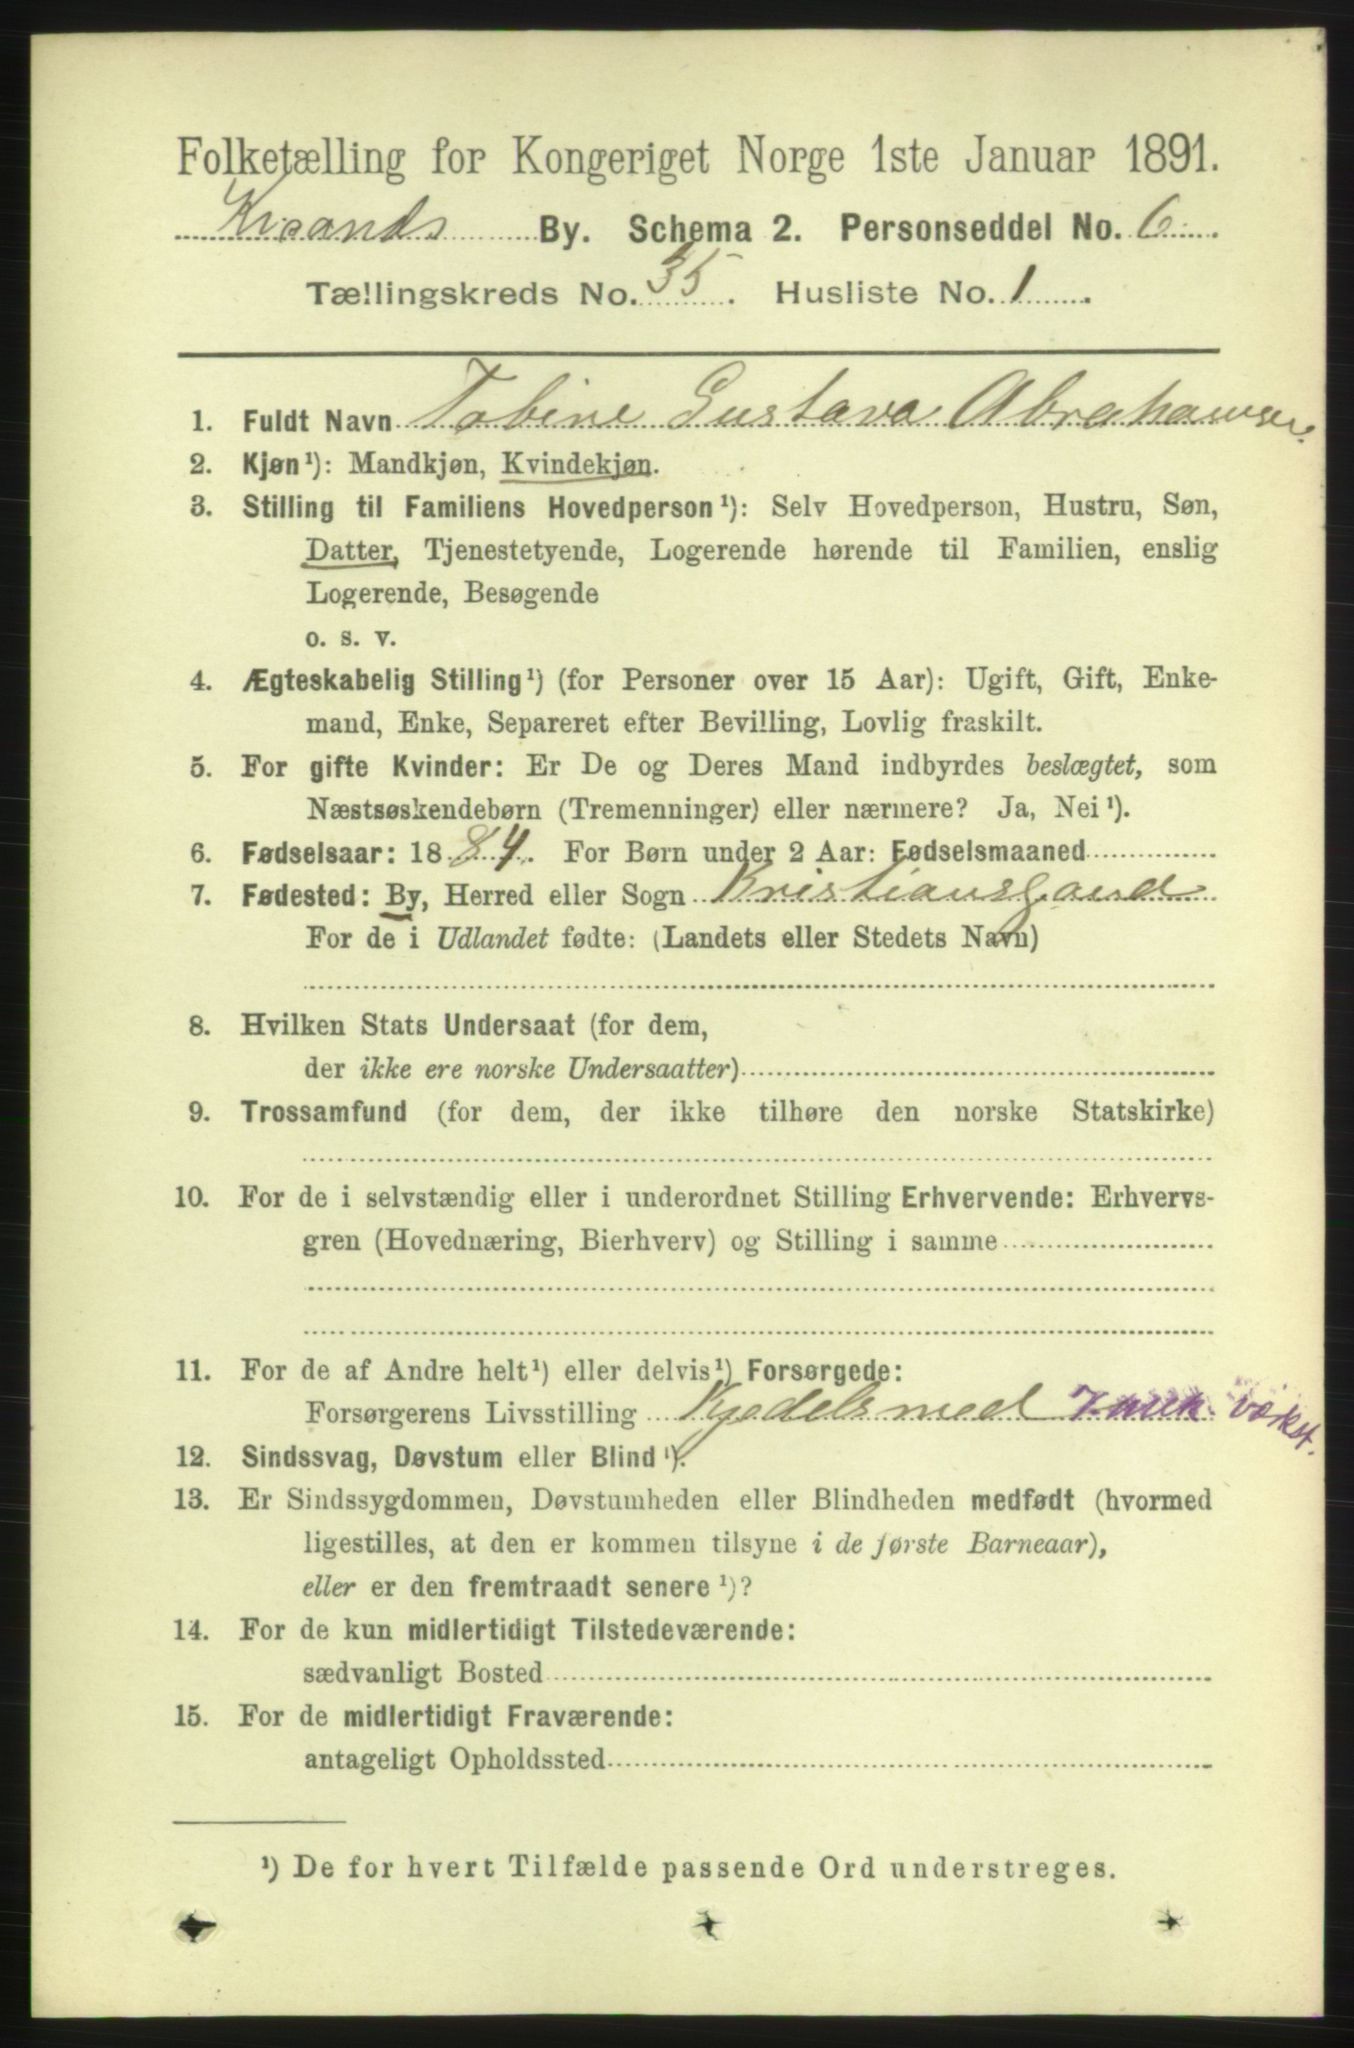 Folketælling for Kongeriget Norge 1ste Januar 1891.
Krsands By. Schema 2. Personseddel No. 6.
Tællingskreds No. 35. Husliste No. 1.
1. Fuldt Navn Tobine Gustava Abrahamsen.
2. Kjøn¹): Mandkjøn, Kvindekjøn.
3. Stilling til Familiens Hovedperson¹): Selv Hovedperson, Hustru, Søn,
Datter, Tjenestetyende, Logerende hørende til Familien, enslig
Logerende, Besøgende
o. s. v.
4. Ægteskabelig Stilling¹) (for Personer over 15 Aar): Ugift, Gift, Enke-
mand, Enke, Separeret efter Bevilling, Lovlig fraskilt.
5. For gifte Kvinder: Er De og Deres Mand indbyrdes beslægtet, som
Næstsøskendebørn (Tremenninger) eller nærmere? Ja, Nei¹).
6. Fødselsaar: 1884. For Børn under 2 Aar: Fødselsmaaned
7. Fødested: By, Herred eller Sogn Kristianssand
For de i Udlandet fødte: (Landets eller Stedets Navn)
8. Hvilken Stats Undersaat (for dem,
der ikke ere norske Undersaatter)
9. Trossamfund (for dem, der ikke tilhøre den norske Statskirke)
10. For de i selvstændig eller i underordnet Stilling Erhvervende: Erhvervs-
gren (Hovednæring, Bierhverv) og Stilling i samme
11. For de af Andre helt¹) eller delvis¹) Forsørgede:
Forsørgerens Livsstilling Kjedelsmed mek. værkst.
12. Sindssvag, Døvstum eller Blind¹).
13. Er Sindssygdommen, Døvstumheden eller Blindheden medfødt (hvormed
ligestilles, at den er kommen tilsyne i de første Barneaar),
eller er den fremtraadt senere¹)?
14. For de kun midlertidigt Tilstedeværende:
sædvanligt Bosted
15. For de midlertidigt Fraværende:
antageligt Opholdssted
¹) De for hvert Tilfælde passende Ord understreges.